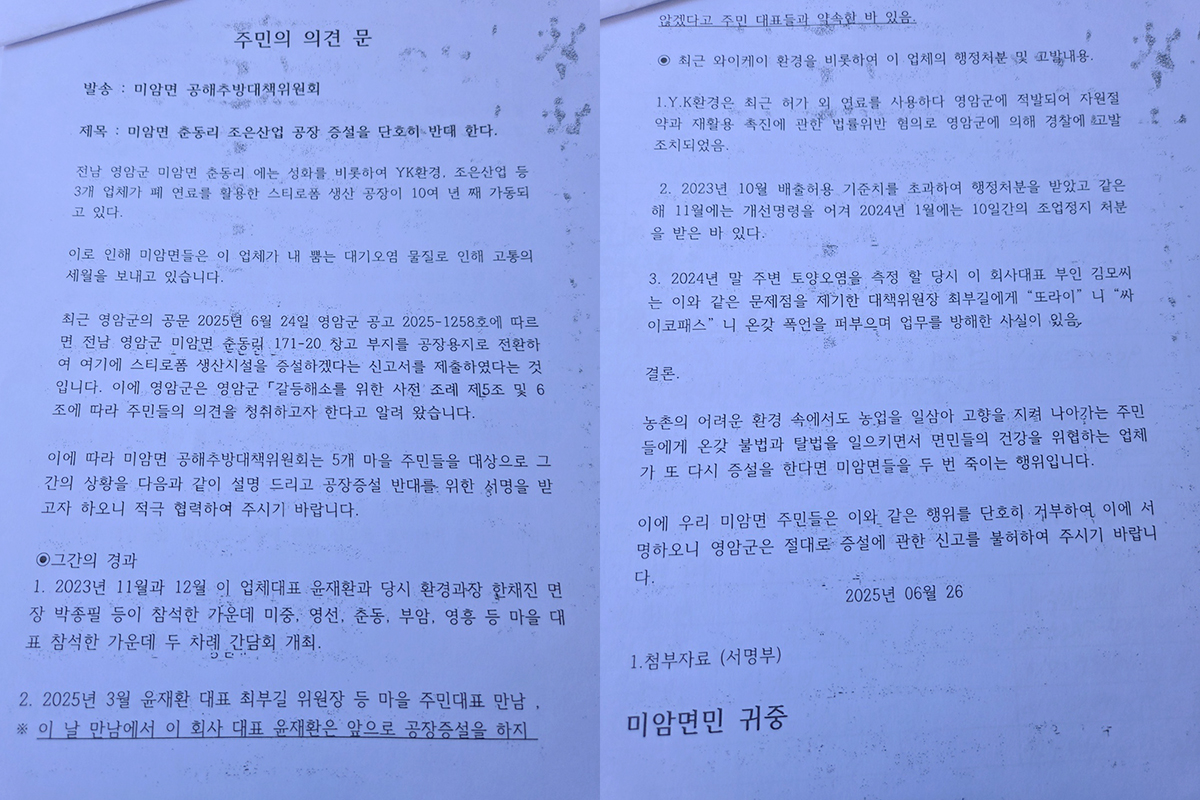 주민의 의견 문
발송 : 미암면 공해추방대책위원회
제목 : 미암면 춘동리 조은산업 공장 증설을 단호히 반대 한다.
전남 영암군 미암면 춘동리 에는 성화를 비롯하여 YK환경, 조은산업 등
3개 업체가 폐 연료를 활용한 스티로폼 생산 공장이 10여 년 째 가동되
고 있다.
이로 인해 미암면들은 이 업체가 내 뿜는 대기오염 물질로 인해 고통의
세월을 보내고 있습니다.
최근 영암군의 공문 2025년 6월 24일 영암군 공고 2025-1258호에 따르
면 전남 영암군 미암면 춘동리 171-20 창고 부지를 공장용지로 전환하
여 여기에 스티로폼 생산시설을 증설하겠다는 신고서를 제출하였다는 것
입니다. 이에 영암군은 영암군 「갈등해소를 위한 사전 조례 제5조 및 6
조에 따라 주민들의 의견을 청취하고자 한다고 알려 왔습니다.
이에 따라 미암면 공해추방대책위원회는 5개 마을 주민들을 대상으로 그
간의 상황을 다음과 같이 설명 드리고 공장증설 반대를 위한 서명을 받
고자 하오니 적극 협력하여 주시기 바랍니다.
◉그간의 경과
1. 2023년 11월과 12월 이 업체대표 윤재환과 당시 환경과장 한채진 면
장 박종필 등이 참석한 가운데 미중, 영선, 춘동, 부암, 영흥 등 마을 대
표 참석한 가운데 두 차례 간담회 개최.
2. 2025년 3월 윤재환 대표 최부길 위원장 등 마을 주민대표 만남 ,
※ 이 날 만남에서 이 회사 대표 윤재환은 앞으로 공장증설을 하지
않겠다고 주민 대표들과 약속한 바 있음.
◉ 최근 와이케이 환경을 비롯하여 이 업체의 행정처분 및 고발내용.
1.Y.K환경은 최근 허가 외 연료를 사용하다 영암군에 적발되어 자원절
약과 재활용 촉진에 관한 법률위반 혐의로 영암군에 의해 경찰에 고발
조치되었음.
2. 2023년 10월 배출허용 기준치를 초과하여 행정처분을 받았고 같은
해 11월에는 개선명령을 어겨 2024년 1월에는 10일간의 조업정지 처분
을 받은 바 있다.
3. 2024년 말 주변 토양오염을 측정 할 당시 이 회사대표 부인 김모씨
는 이와 같은 문제점을 제기한 대책위원장 최부길에게 “또라이” 니 “싸
이코패스” 니 온갖 폭언을 퍼부으며 업무를 방해한 사실이 있음.
결론.
농촌의 어려운 환경 속에서도 농업을 일삼아 고향을 지켜 나아가는 주민
들에게 온갖 불법과 탈법을 일으키면서 면민들의 건강을 위협하는 업체
가 또 다시 증설을 한다면 미암면들을 두 번 죽이는 행위입니다.
이에 우리 미암면 주민들은 이와 같은 행위를 단호히 거부하여 이에 서
명하오니 영암군은 절대로 증설에 관한 신고를 불허하여 주시기 바랍니
다.
2025년 06월 26
1.첨부자료 (서명부)
미암면민 귀중